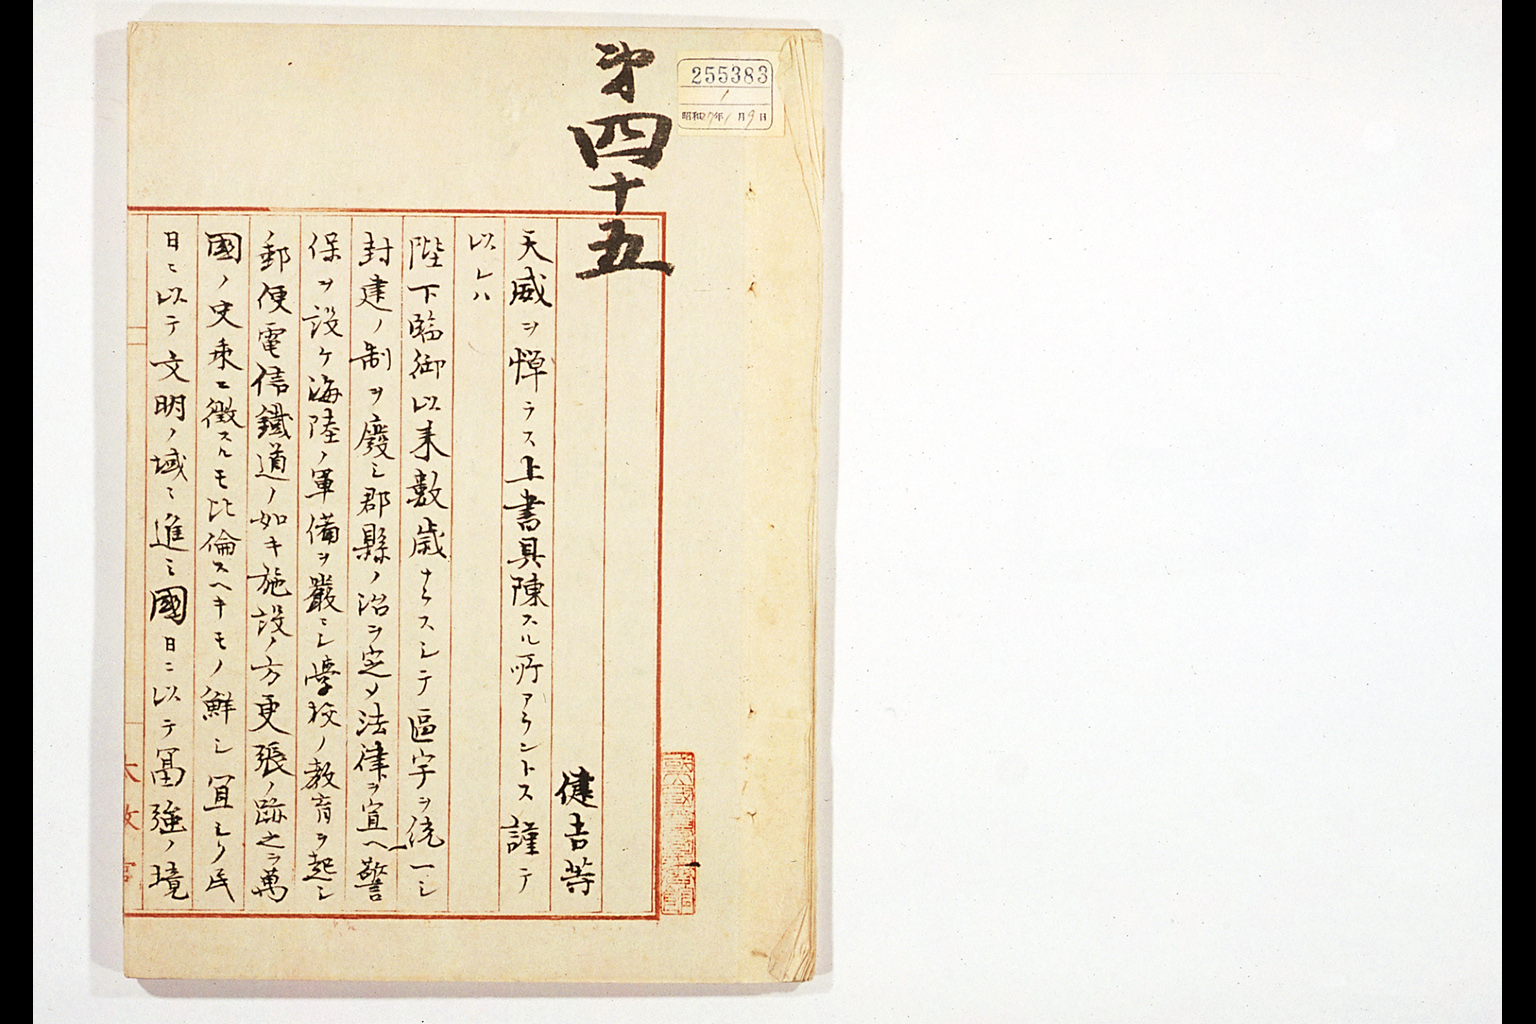 第四十五
255383
1
昭和 年 月 日
健吉等
天威ヲ憚ラス上書具陳スル所アラントス謹テ
以レハ
陛下臨御以来数歳ナラスシテ區宇ヲ統一シ
封建ノ制ヲ廢シ郡縣ノ治ヲ定メ法律ヲ宣ヘ警
保ヲ設ケ海陸ノ軍備ヲ嚴ニシ學校ノ教育ヲ起シ
郵便電信鐵道ノ如キ施設ノ方更張ノ跡之ヲ萬
國ノ史乗ニ徴スルモ比倫スヘキモノ鮮シ宜シク民
日ニ以テ文明ノ域ニ進ミ國日ニ以テ冨強ノ境
太政官